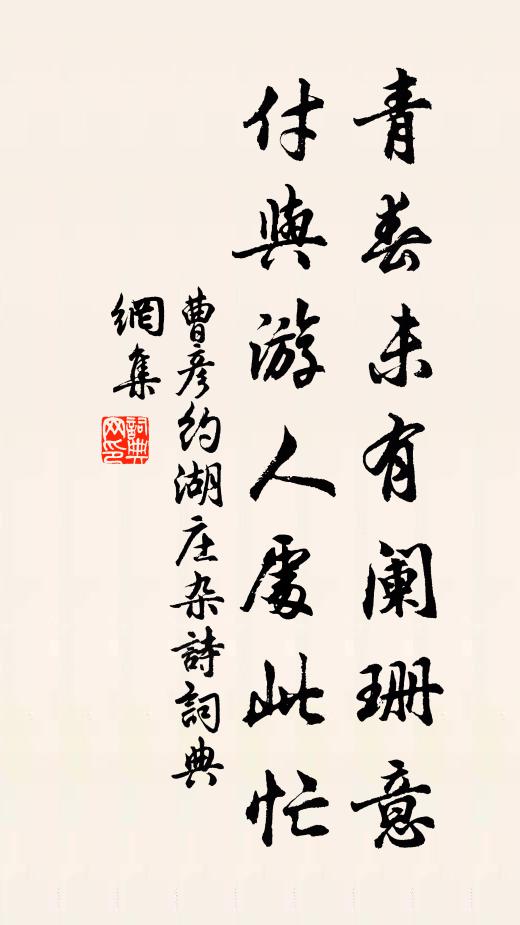 青春未有阑珊意
付與游人處此忙
曹彦约湖庄杂詩詞典
網集
詞典网印